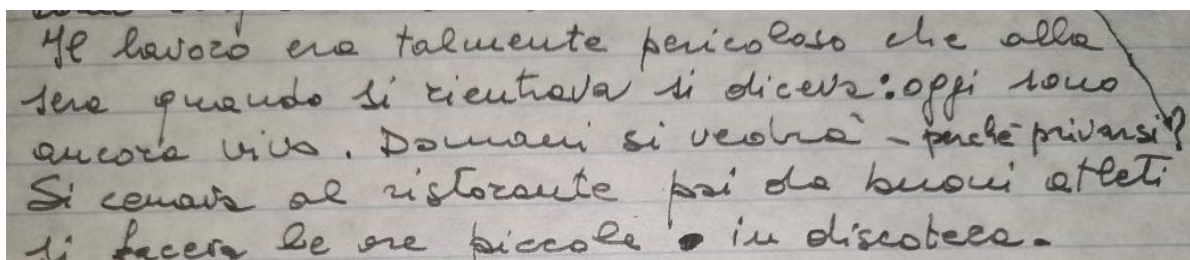 Il lavoro era talmente pericoloso che alla
sera quando si rientrava si diceva: oggi sono
ancora vivo. Domani si vedrà - perché privarsi?
Si cenava al ristorante poi da buoni atleti
si faceva le ore piccole in discoteca.